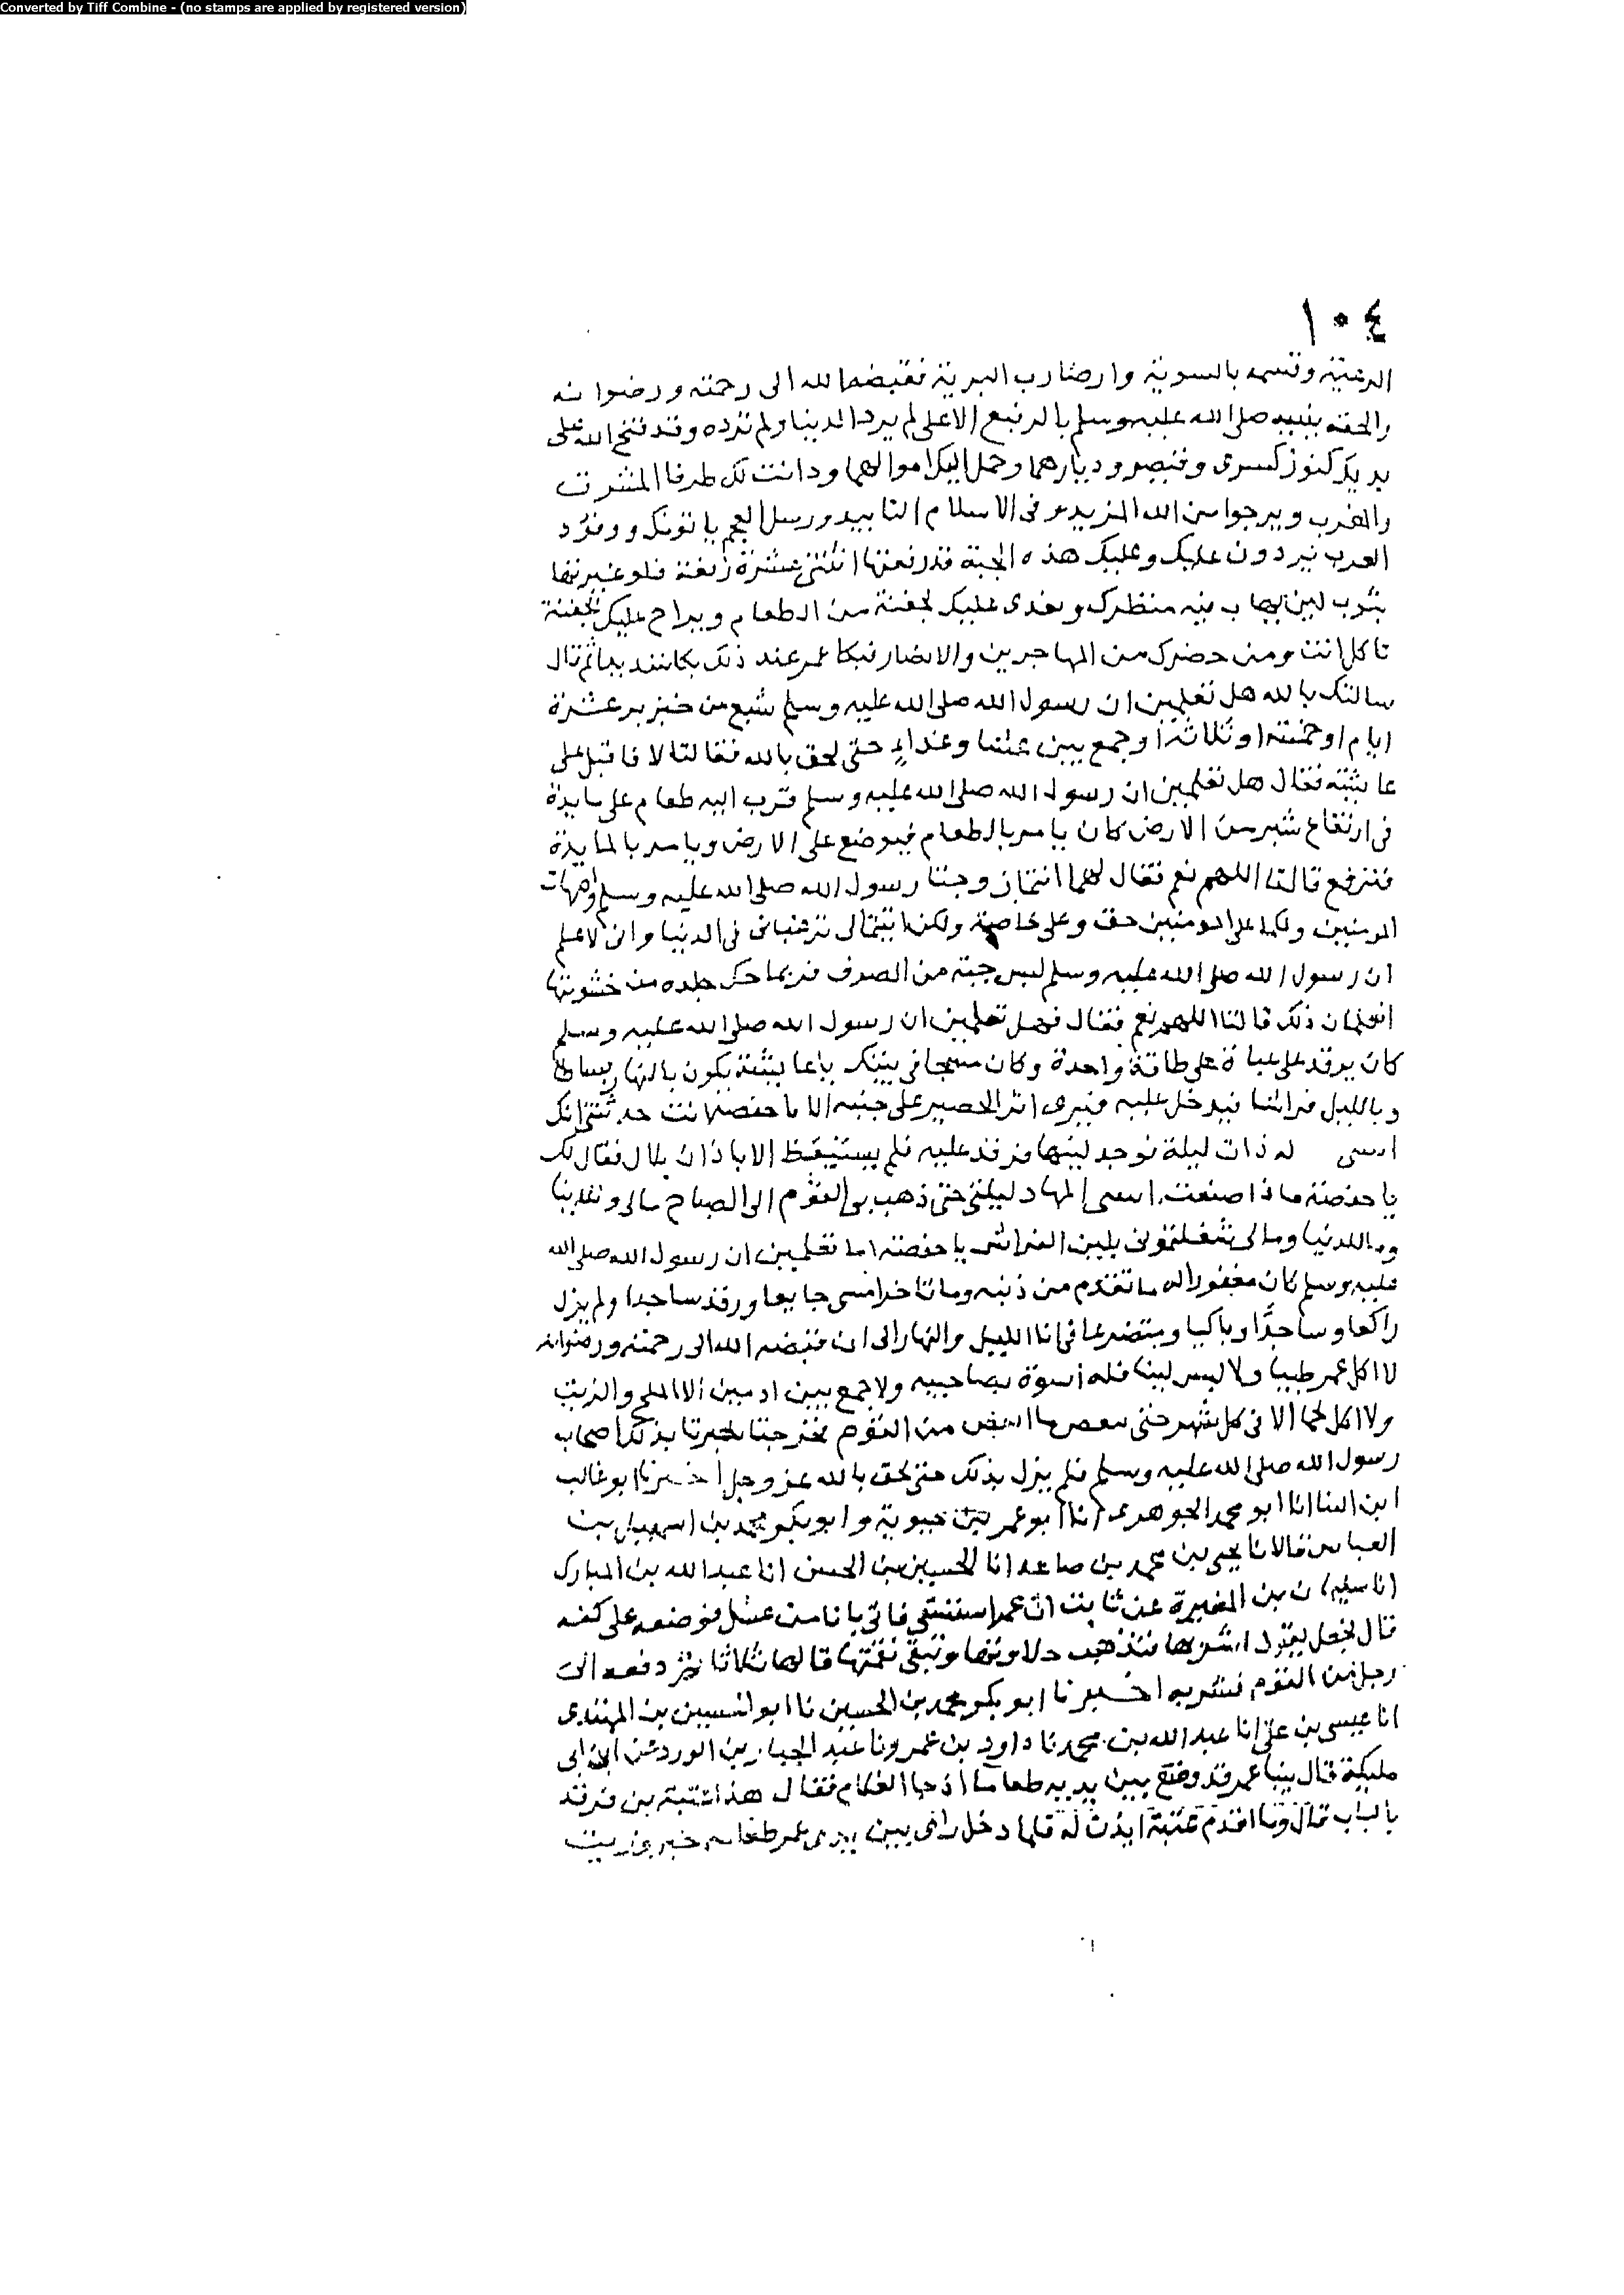 Converted by Tiff Combine - (no stamps are applied by registered version)
١٠٤
الرعية وقسمه بالسوية وارضا رب البرية فقبضه الله الى رحمته ورضوانه
والحقه بنبيه صلى الله عليه وسلم بالرفيع الاعلى لم يرد الدنيا ولم ترده وقد فتح الله على
يديك كنوز كسرى وقيصر وديارهما وحمل اليك اموالهما ودانت لك طرفا المشرق
والمغرب ويرجوا من الله المزيد وفى الاسلام التاييد ورسل العجم ياتونك ووفود
العرب يردون عليك وعليك هذه الجبة قد رقعتها اثنتى عشرة رقعة فلو غيرتها
بثوب لين يهاب فيه منظرك ويغدى عليك بجفنة من الطعام ويراح عليك بجفنة
تاكل انت ومن حضرك من المهاجرين والانصار فبكا عمر عند ذلك بكا شديدا ثم قال
سالتك بالله هل تعلمين ان رسول الله صلى الله عليه وسلم شبع من خبز بر عشرة
ايام او خمسة او ثلاثة او جمع بين عشا وغداء حتى لحق بالله فقالت لا فاقبل على
عايشة فقال هل تعلمين ان رسول الله صلى الله عليه وسلم قرب اليه طعام على مايدة
فى ارتفاع شبر من الارض كان يامر بالطعام فيوضع على الارض ويامر بالمايدة
فترفع قالتا اللهم نعم فقال لهما انتما زوجتا رسول الله صلى الله عليه وسلم وامهات
المومنين ولكما على المومنين حق وعلى خاصة ولكن اتيتمانى ترغبانى فى الدنيا وانى لاعلم
ان رسول الله صلى الله عليه وسلم لبس جبة من الصوف فربما حك جلده من خشونتها
اتعلمان ذلك قالتا اللهم نعم فقال فهل تعلمين ان رسول الله صلى الله عليه وسلم
كان يرقد على عباة على طاقة واحدة وكان مسجا فى بيتك يا عايشة يكون بالنهار بساطا
وبالليل فراشا فيدخل عليه فيرى اثر الحصير على جنبه الا يا حفصة انت حدثتنى انك
له ذات ليلة فوجد لينها فرقد عليه فلم يستيقظ الا باذان بلال فقال لك
يا حفصة ماذا صنعت المهاد ليلتى حتى ذهب بى النوم الى الصباح مالى وللدنيا
وما للدنيا ومالى شغلتمونى بلين الفراش يا حفصة اما تعلمين ان رسول الله صلى الله
عليه وسلم كان مغفورا له ما تقدم من ذنبه وما تاخر امسى جايعا ورقد ساجدا ولم يزل
راكعا وساجدًا وباكيا ومتضرعا فى انا الليل والنهار الى ان قبضه الله الى رحمته ورضوانه
لا اكل عمر طيبا ولا لبس لينا فله اسوة بصاحبيه ولا جمع بين ادمين الا الملح والزيت
ولا اكل لحما الا فى كل شهر حتى من القوم فخرجتا فخبرتا بذلك اصحاب
رسول الله صلى الله عليه وسلم فلم يزل بذلك حتى لحق بالله عز وجل اخبرنا ابو غالب
ابن البنا انا ابو محمد الجوهرى انا ابو عمر بن حيوية وابو بكر محمد بن اسمعيل بن
العباس قالا نا يحيى بن محمد بن صاعد انا الحسين بن الحسن انا عبد الله بن المبارك
انا سليمان بن المغيرة عن ثابت ان عمر استسقى فاتى بانا من عسل فوضعه على كفه
قال فجعل يقول اشربها فتذهب حلاوتها وتبقى نقمتها قالها ثلاثا ثم دفعه الى
رجل من القوم فشربه اخبرنا ابو بكر محمد بن الحسين نا ابو الحسين بن المهتدى
انا عيسى بن على انا عبد الله بن محمد نا داود بن عمرو نا عبد الجبار بن الورد عن ابن ابى
مليكة قال بينا عمر قد وضع بين يديه طعاما اذ جا الغلام فقال هذا عتبة بن فرقد
بالباب قال وما اقدم عتبة ايذن له فلما دخل راى بين يدى عمر طعامه خبز وزيت